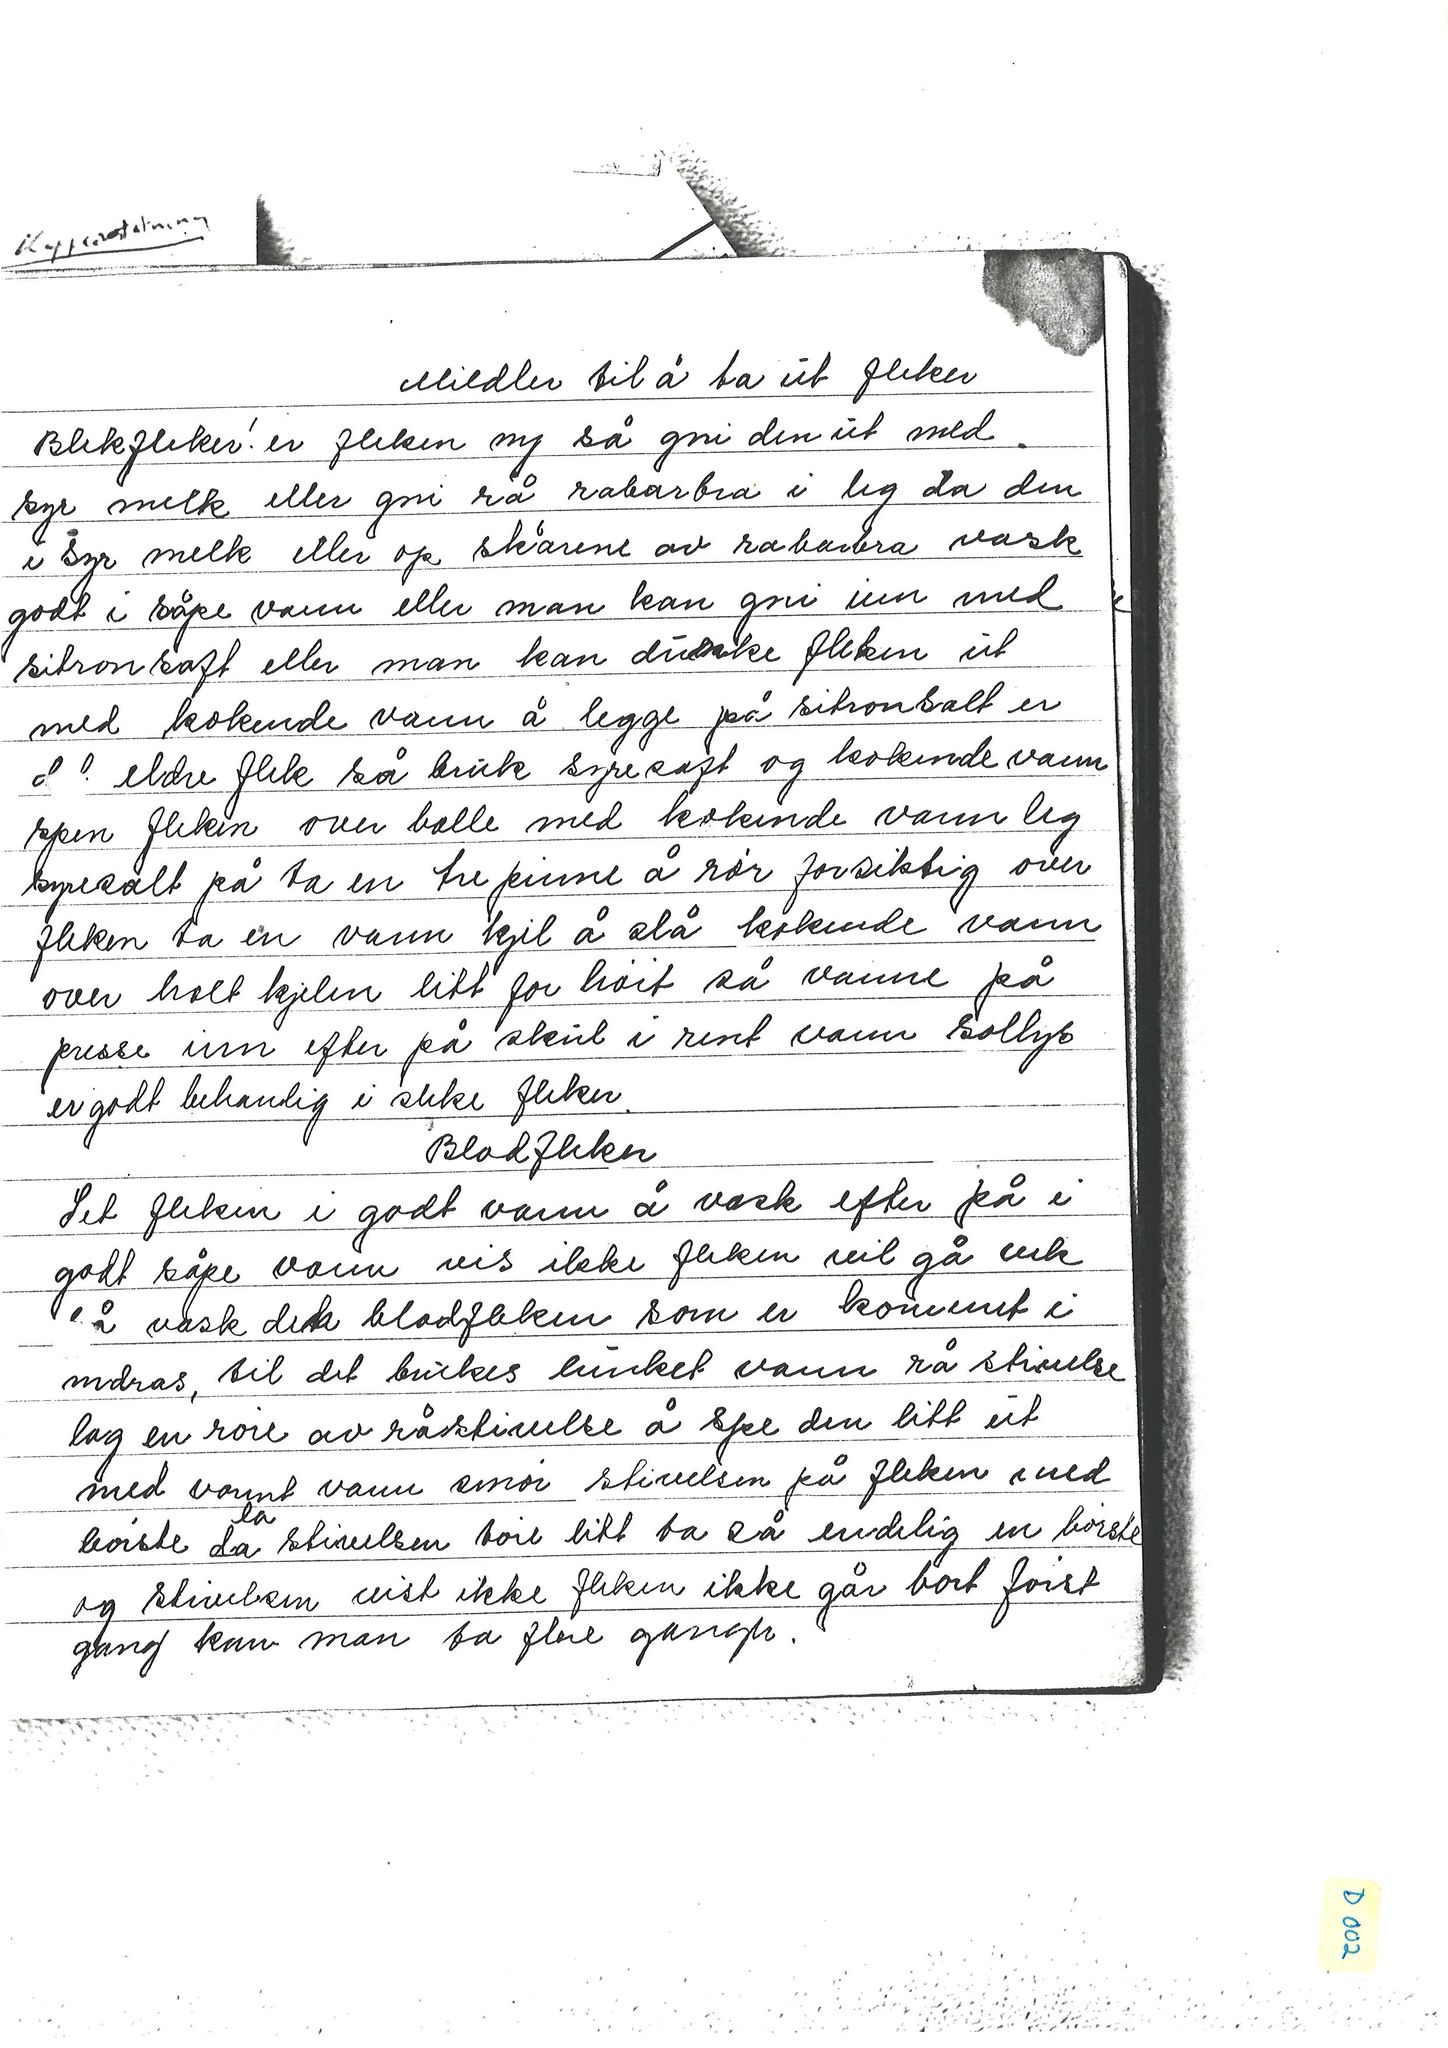 Midler til å ta út fleker
Blekfleker! er fleken ny så gni den út med
syr melk eller gni rå rabarbra i leg da den
i syr melk eller op skårene av rabarbra vask
godt i såpe vann eller man kan gni inn med
sitronsaft eller man kan dúnke fleken út
med kokende vann å legge på sitronsalt er
eldre flek så brúk syresaft og kokende vann
spen fleken over bolle med kokende vann leg
syresalt på ta en tre pinne å rór forsiktig over
fleken ta en vann kjel å slå kokende vann
over holt kjelen litt for hóit så vanne på
presse inn efter på skúl i rent vann sollys
er godt behandlig i slike fleker.
Blodfleker
Set fleken i godt vann å vask efter på i
godt såpe vann vis ikke fleken vil gå vek
å vask den blodfleken som er kommet i
mdras, til det brúkes lúnket vann rå stivelse
lag en róre av råstivelse å spe den litt út
med varmt vann smór stivelsen på fleken med
bórste la stivelsen tóre litt ta så endelig en bórste
og stivelsen vist ikke fleken ikke går bort fórst
gang kan man ta flere ganger.
D 002